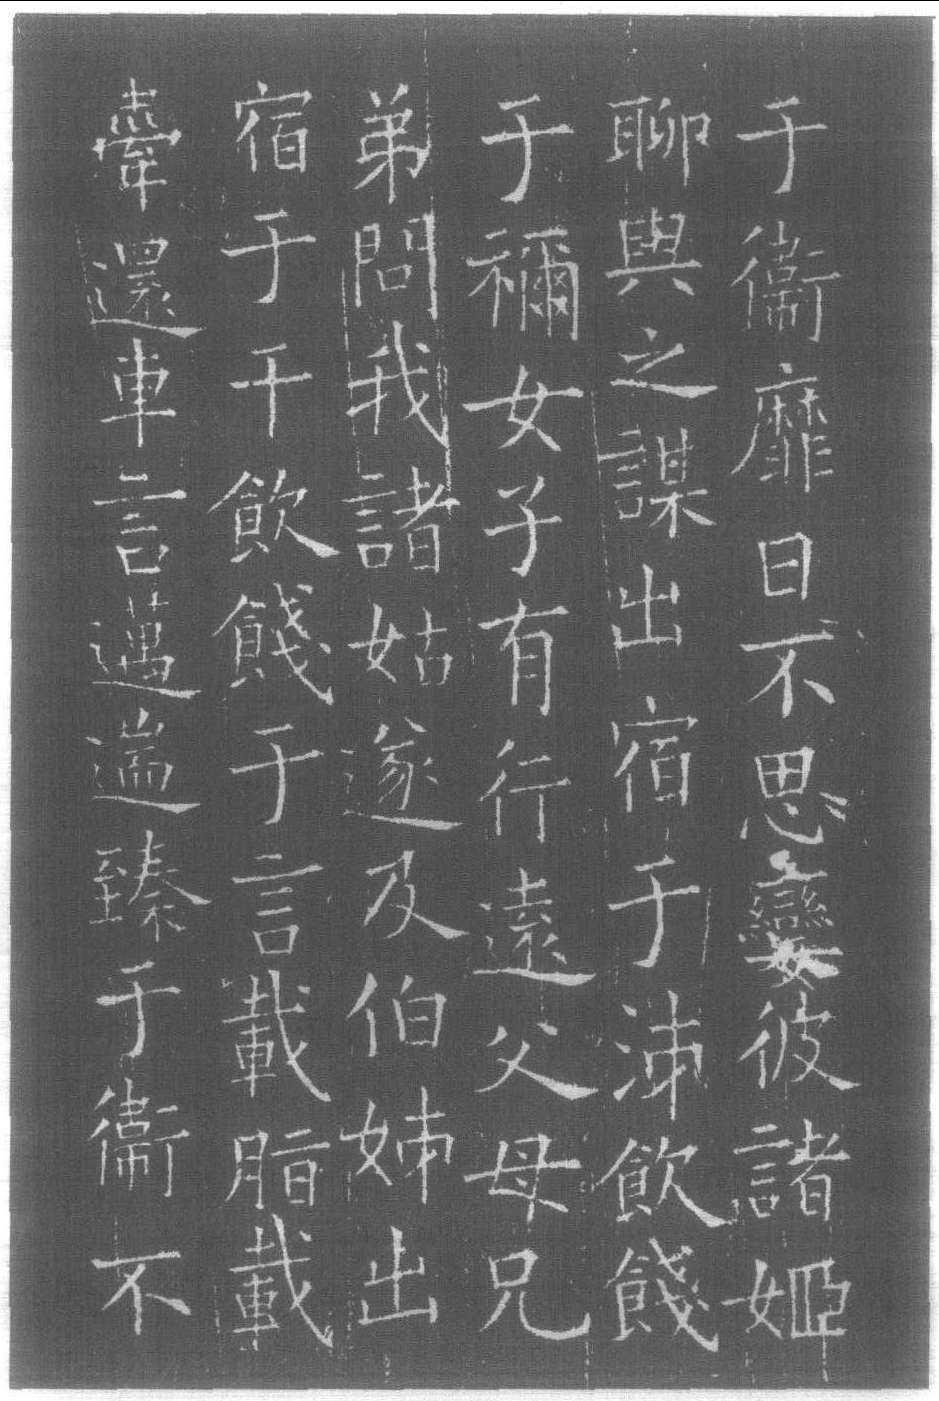 于衞靡日不思孌彼諸姬
聊與之謀出宿于泲飲餞
于禰女子有行遠父母兄
弟問我諸姑遂及伯姊出
宿于干飲餞于言載脂載
舝還車言邁遄臻于衞不